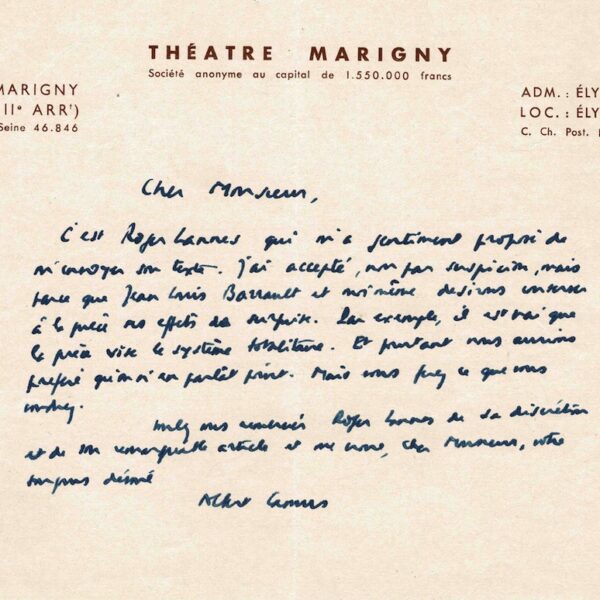 THÉATRE MARIGNY
Société anonyme au capital de 1.550.000 francs
MARIGNY
II° ARRᵗ)
Seine 46.846
ADM. : ÉLY
LOC. : ÉLY
C. Ch. Post.
Cher Monsieur,
C'est Roger Lannes qui m'a gentiment proposé de
m'envoyer son texte. J'ai accepté, non par suspicion, mais
parce que Jean Louis Barrault et moi-même désirons conserver
à la pièce ses effets de surprise. Par exemple, il est vrai que
la pièce vise le système totalitaire. Et pourtant nous aurions
préféré qu'on n'en parlât point. Mais vous ferez ce que vous
voudrez.
Roger Lannes de sa discrétion
et de son remarquable article et me croire, cher Monsieur, votre
dévoué
Albert Camus